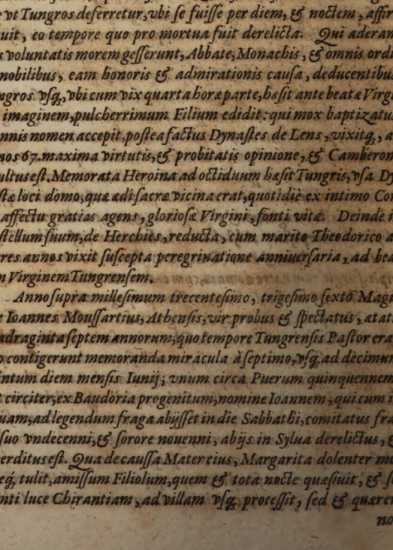 vt Tungros deferretur, vbi se fuisse per diem, & noctem, affir
uit, eo tempore quo pro mortua fuit derelicta. Qui aderan
a voluntatis morem gesserunt, Abbate, Monachis, & omnis ordi
nobilibus, eam honoris & admirationis causa, deducentibus
ngros vsq;, vbi cum vix quarta horæ parte, hæsit ante beatæ Virg
imaginem, pulcherrimum Filium edidit: qui mox baptizatu
annis nomen accepit, postea factus Dynastes de Lens, vixitq;, a
nos 67. maxima virtutis, & probitatis opinione, & Camberon
ultus est, Memorata Heroina ad octiduum hæsit Tungris, vsa Dy
stæ loci domo, quæ ædi sacræ vicina erat, quotidie ex intimo Cor
affectu gratias agens, gloriosæ Virgini, fonti vitæ. Deinde i
stellum suum, de Herchies, reducta, cum marito Theodorico a
res annos vixit suscepta peregrinatione anniuersaria, ad bea
m Virginem Tungrensem.
Anno supra millesimum trecentesimo, trigesimo sexto Magi
e Ioannes Moussartius, Athensis, vir probus & spectatus, ætat
adraginta septem annorum, quo tempore Tungrensis Pastor era
o contigerunt memoranda miracula à septimo, vsq; ad decimum
intum diem mensis Iunij; vnum circa Puerum quinquennem
t circiter, ex Baudoria progenitum, nomine Ioannem, qui cum i
uam, ad legendum fraga abijsset in die Sabbathi, comitatus fra
suo vndecenni, & sorore nouenni, abijs in Sylua derelictus, &
erditus est. Qua de causa Mater eius, Margarita dolenter mo
eq; tulit, amissum Filiolum, quem & tota nocte quæsiuit, & se
nti luce Chirantiam, ad villam vsq; processit, sed & quære
no